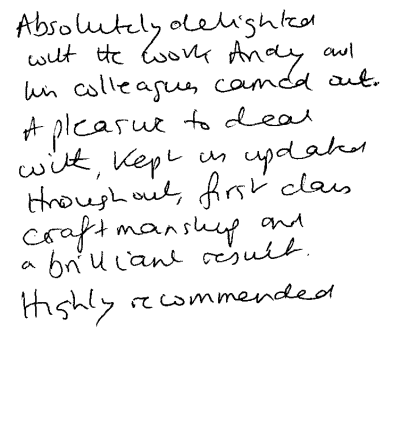 Absolutely delighted
with the work Andy and
his colleagues carried out.
A pleasure to deal
with, kept us updated
throughout, first class
craftmanship and
a brilliant result.
Highly recommended